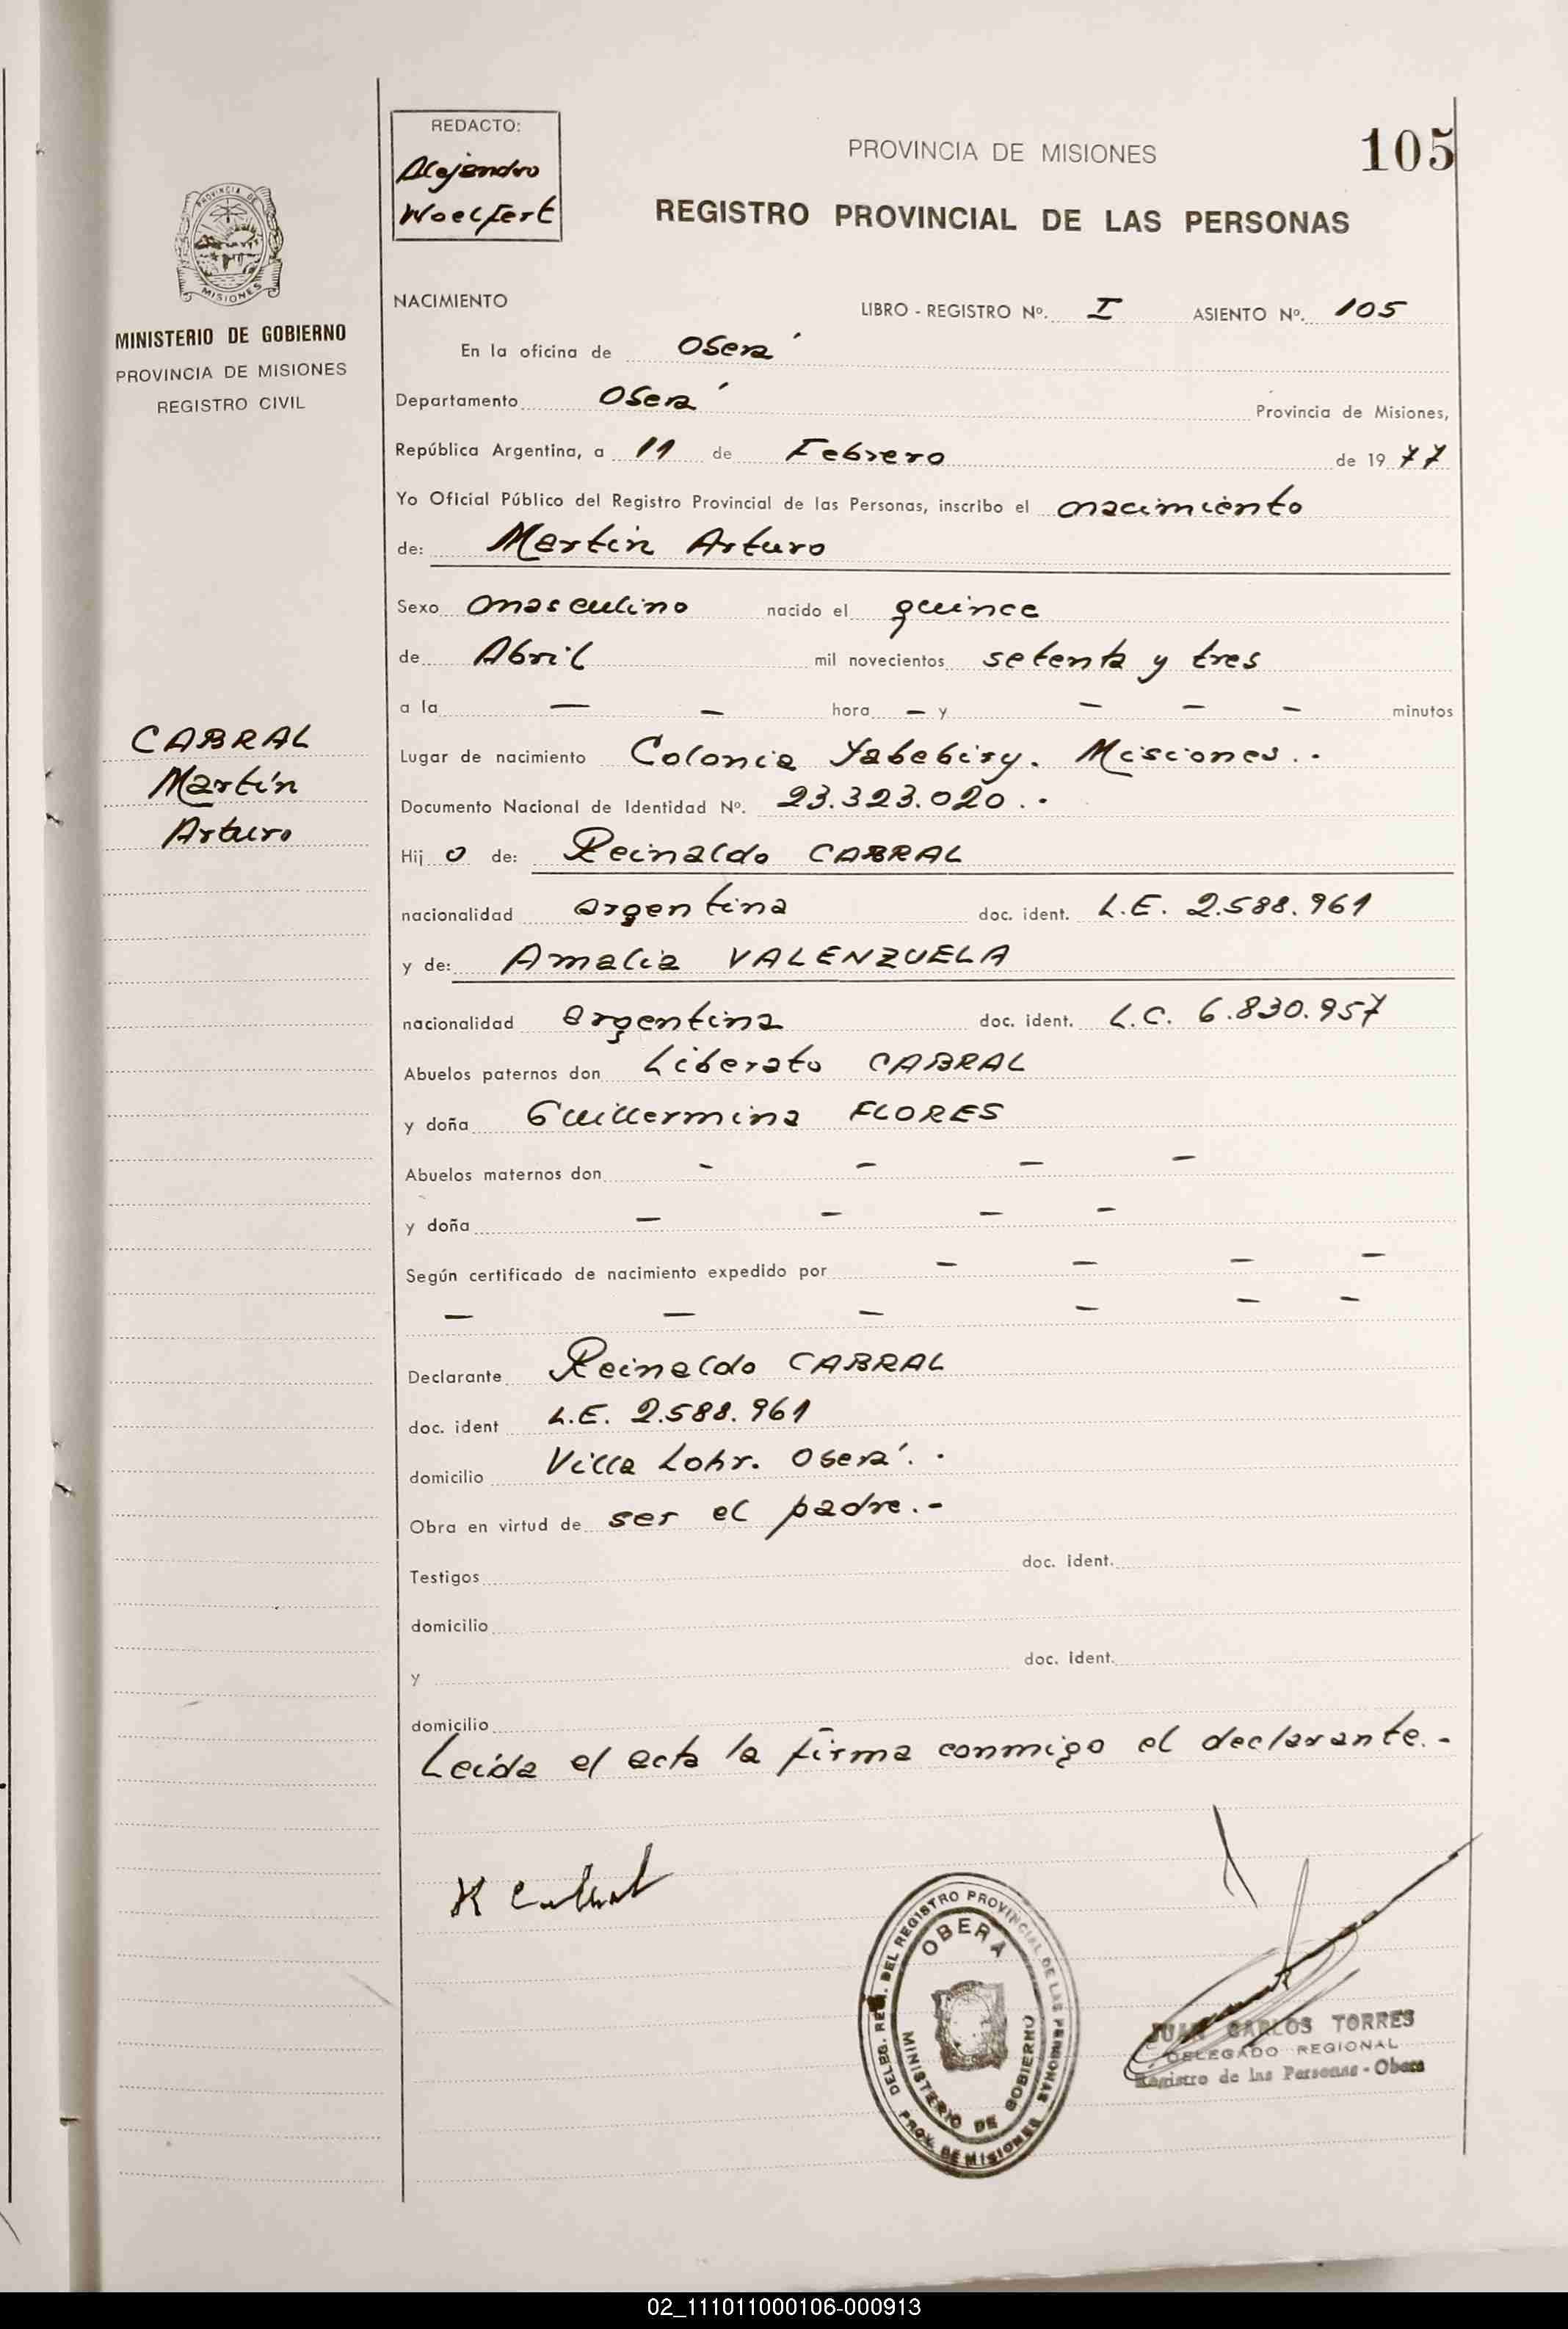 REDACTO:
Alejandro
Woelfert
PROVINCIA DE MISIONES
105
REGISTRO PROVINCIAL DE LAS PERSONAS
PROVINCIA DE
MISIONES
MINISTERIO DE GOBIERNO
PROVINCIA DE MISIONES
REGISTRO CIVIL
NACIMIENTO
LIBRO - REGISTRO Nº. I ASIENTO Nº. 105
En la oficina de Oberá
Departamento Oberá Provincia de Misiones,
República Argentina, a 11 de Febrero de 1977
Yo Oficial Público del Registro Provincial de las Personas, inscribo el nacimiento
de: Martin Arturo
Sexo masculino nacido el quince
de Abril mil novecientos setenta y tres
a la — — hora — y — — — minutos
CABRAL
Martín
Arturo
Lugar de nacimiento Colonia Yabebiry. Misiones. -
Documento Nacional de Identidad Nº. 23.323.020. -
Hij o de: Reinaldo CABRAL
nacionalidad argentina doc. ident. L.E. 2.588.961
y de: Amalia VALENZUELA
nacionalidad argentina doc. ident. L.C. 6.830.957
Abuelos paternos don Liberato CABRAL
y doña Guillermina FLORES
Abuelos maternos don — — — —
y doña — — — —
Según certificado de nacimiento expedido por — — — —
— — — — — —
Declarante Reinaldo CABRAL
doc. ident L.E. 2.588.961
domicilio Villa Lohr. Oberá. -
Obra en virtud de ser el padre. -
Testigos doc. ident.
domicilio
y doc. ident.
domicilio
Leída el acta la firma conmigo el declarante. -
R Cabral
DELEG. REG. DEL REGISTRO PROVINCIAL DE LAS PERSONAS
OBERA
MINISTERIO DE GOBIERNO
PROV. DE MISIONES
JUAN CARLOS TORRES
DELEGADO REGIONAL
Registro de las Personas - Obera
02_111011000106-000913